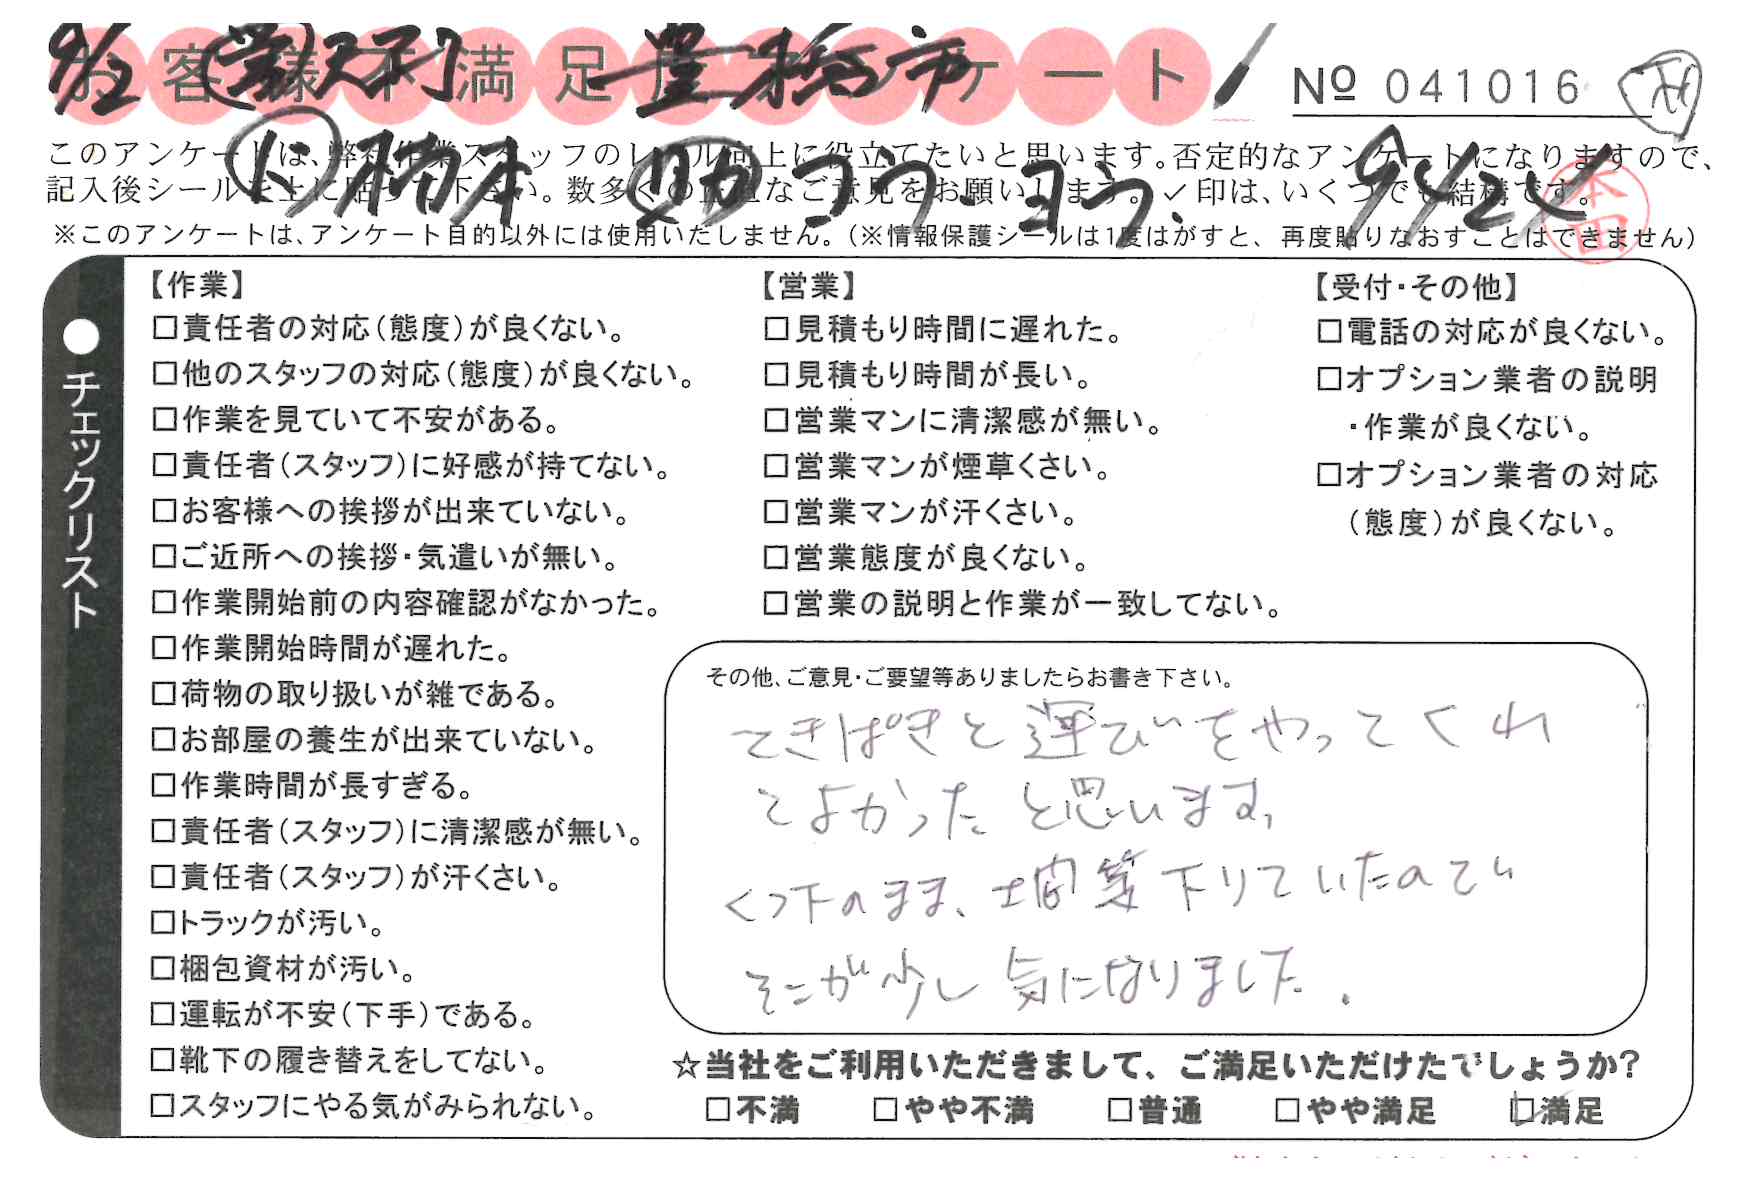 お客様不満足度アンケート
9/2 営 豊橋市
№ 041016
このアンケートは、弊社作業スタッフのレベル向上に役立てたいと思います。否定的なアンケートになりますので、
記入後シールを上に貼って下さい。数多くの正直なご意見をお願いします。✓印は、いくつでも結構です。
助 コウ・ヨウ. 9/24
本田
※このアンケートは、アンケート目的以外には使用いたしません。(※情報保護シールは1度はがすと、再度貼りなおすことはできません)
●チェックリスト
【作業】
□責任者の対応(態度)が良くない。
□他のスタッフの対応(態度)が良くない。
□作業を見ていて不安がある。
□責任者(スタッフ)に好感が持てない。
□お客様への挨拶が出来ていない。
□ご近所への挨拶・気遣いが無い。
□作業開始前の内容確認がなかった。
□作業開始時間が遅れた。
□荷物の取り扱いが雑である。
□お部屋の養生が出来ていない。
□作業時間が長すぎる。
□責任者(スタッフ)に清潔感が無い。
□責任者(スタッフ)が汗くさい。
□トラックが汚い。
□梱包資材が汚い。
□運転が不安(下手)である。
□靴下の履き替えをしてない。
□スタッフにやる気がみられない。
【営業】
□見積もり時間に遅れた。
□見積もり時間が長い。
□営業マンに清潔感が無い。
□営業マンが煙草くさい。
□営業マンが汗くさい。
□営業態度が良くない。
□営業の説明と作業が一致してない。
【受付・その他】
□電話の対応が良くない。
□オプション業者の説明
・作業が良くない。
□オプション業者の対応
(態度)が良くない。
その他、ご意見・ご要望等ありましたらお書き下さい。
てきぱきと運びをやってくれ
てよかったと思います。
くつ下のまま、土間等下りていたので
そこが少し気になりました.
☆当社をご利用いただきまして、ご満足いただけたでしょうか?
□不満 □やや不満 □普通 □やや満足 ☑満足